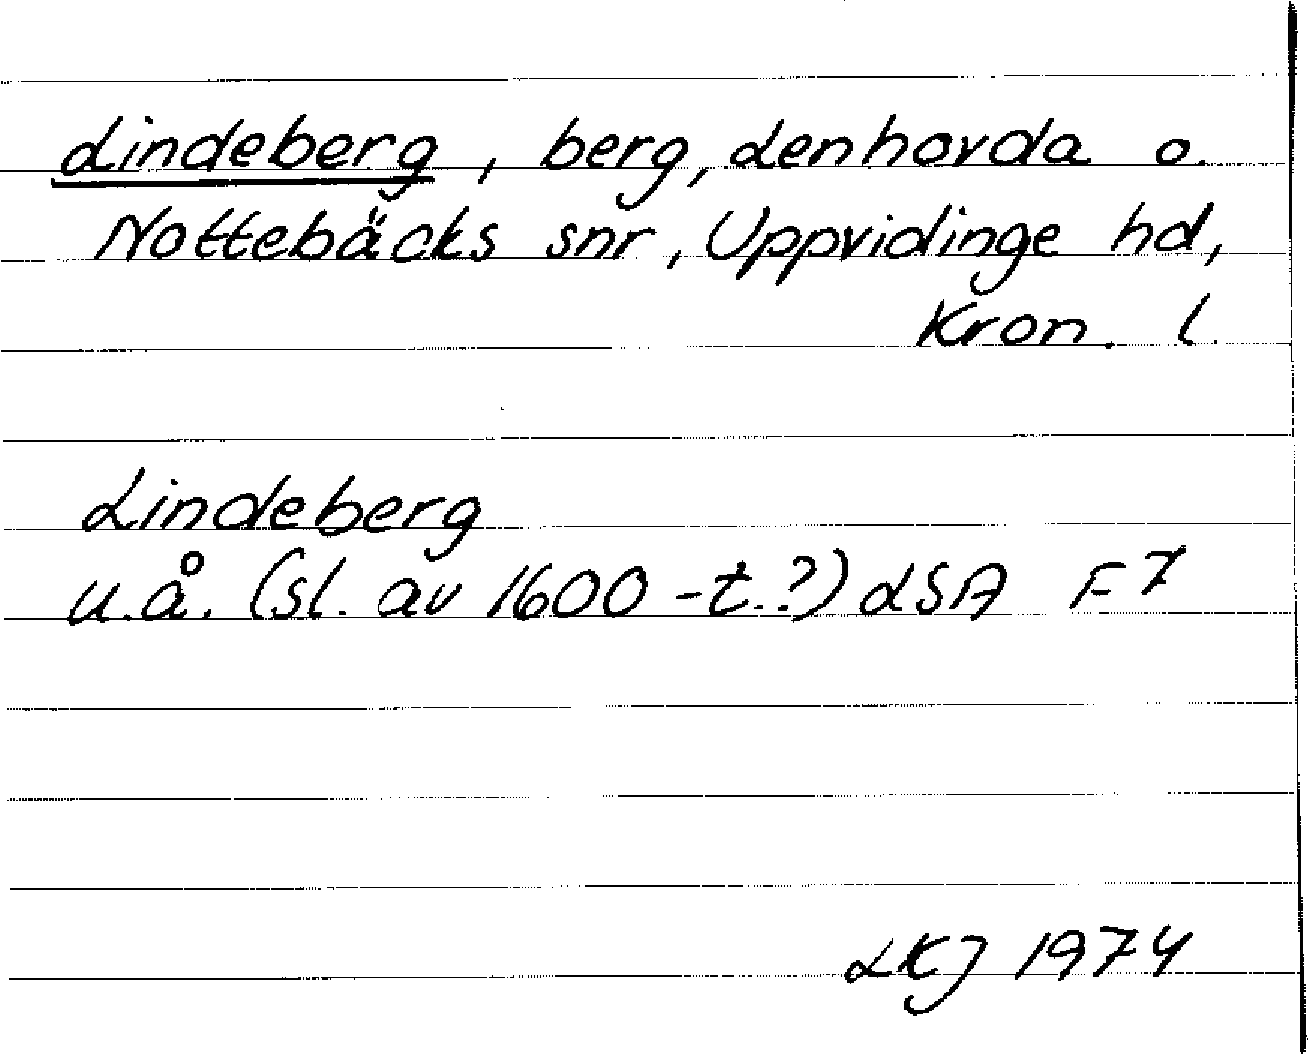 Lindeberg, berg, Lenhovda o.
Nottebäcks snr, Uppvidinge hd,
Kron. l.
Lindeberg
u.å. (sl. av 1600-t.?) LSA F7
LKJ 1974